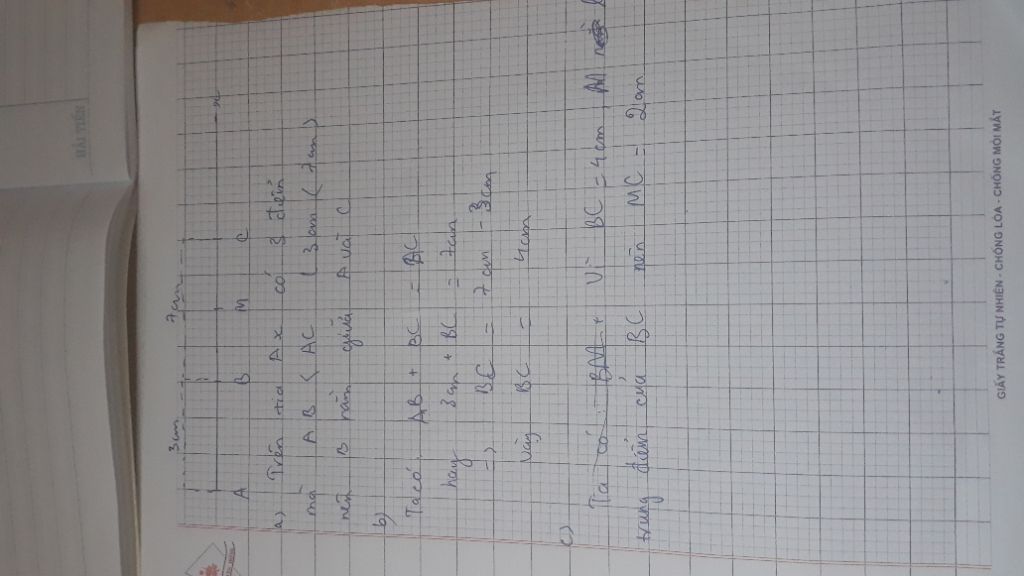 3cm 7cm
A B M C x
a) Trên tia Ax có 3 điểm
mà AB < AC ( 3cm < 7cm )
nên B nằm giữa A và C
b)
Ta có AB + BC = BC
hay 3cm + BC = 7cm
=> BC = 7cm - 3cm
Vậy BC = 4cm
c)
Ta có: BM + Vì BC = 4cm M
trung điểm của BC nên MC = 2cm
HẢI TIẾN
GIẤY TRẮNG TỰ NHIÊN - CHỐNG LÓA - CHỐNG MỎI MẮT